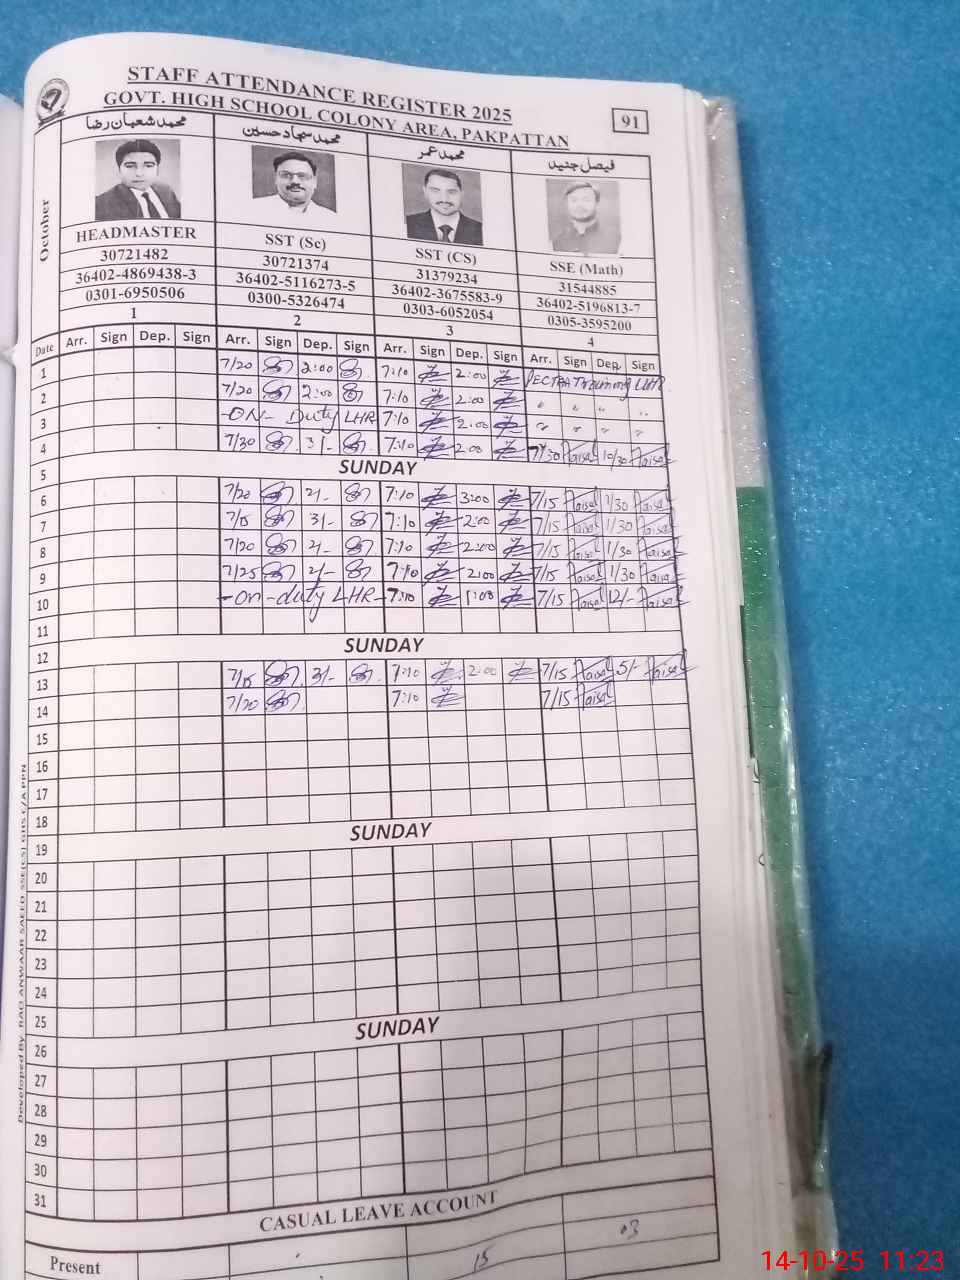 STAFF ATTENDANCE REGISTER 2025
GOVT. HIGH SCHOOL COLONY AREA, PAKPATTAN
91
October
محمد شعبان رضا محمد سجاد حسین محمد عمر فیصل جنید
HEADMASTER SST (Sc) SST (CS) SSE (Math)
30721482 30721374 31379234 31544885
36402-4869438-3 36402-5116273-5 36402-3675583-9 36402-5196813-7
0301-6950506 0300-5326474 0303-6052054 0305-3595200
1 2 3 4
Date Arr. Sign Dep. Sign Arr. Sign Dep. Sign Arr. Sign Dep. Sign Arr. Sign Dep. Sign
1 7/20 2:00 7:10 2:00 Training
2 7/20 2:00 7:10 2:00 " " " "
3 -ON- Duty LHR 7:10 2:00 " " " "
4 7/30 3/- 7:10 2:00 7/30 Faisal 10/30 Faisal
5 SUNDAY
6 7/20 2/- 7:10 3:00 7/15 Faisal 1/30 Faisal
7 7/15 3/- 7:10 2:00 7/15 Faisal 1/30 Faisal
8 7/20 2/- 7:10 2:00 7/15 Faisal 1/30 Faisal
9 7/25 2/- 7:10 2:00 7/15 Faisal 1/30 Faisal
10 -On-duty LHR- 7:10 1:00 7/15 Faisal 12/- Faisal
11
12 SUNDAY
13 7/15 3/- 7:10 2:00 7/15 Faisal 5/- Faisal
14 7/20 7:10 7/15 Faisal
15
16
17
18
19 SUNDAY
20
21
22
23
24
25
26 SUNDAY
27
28
29
30
31
CASUAL LEAVE ACCOUNT
Present 15 03
Developed By: RAO ANWAAR SAEED SSE(CS) GHS C/A PPN
14-10-25 11:23